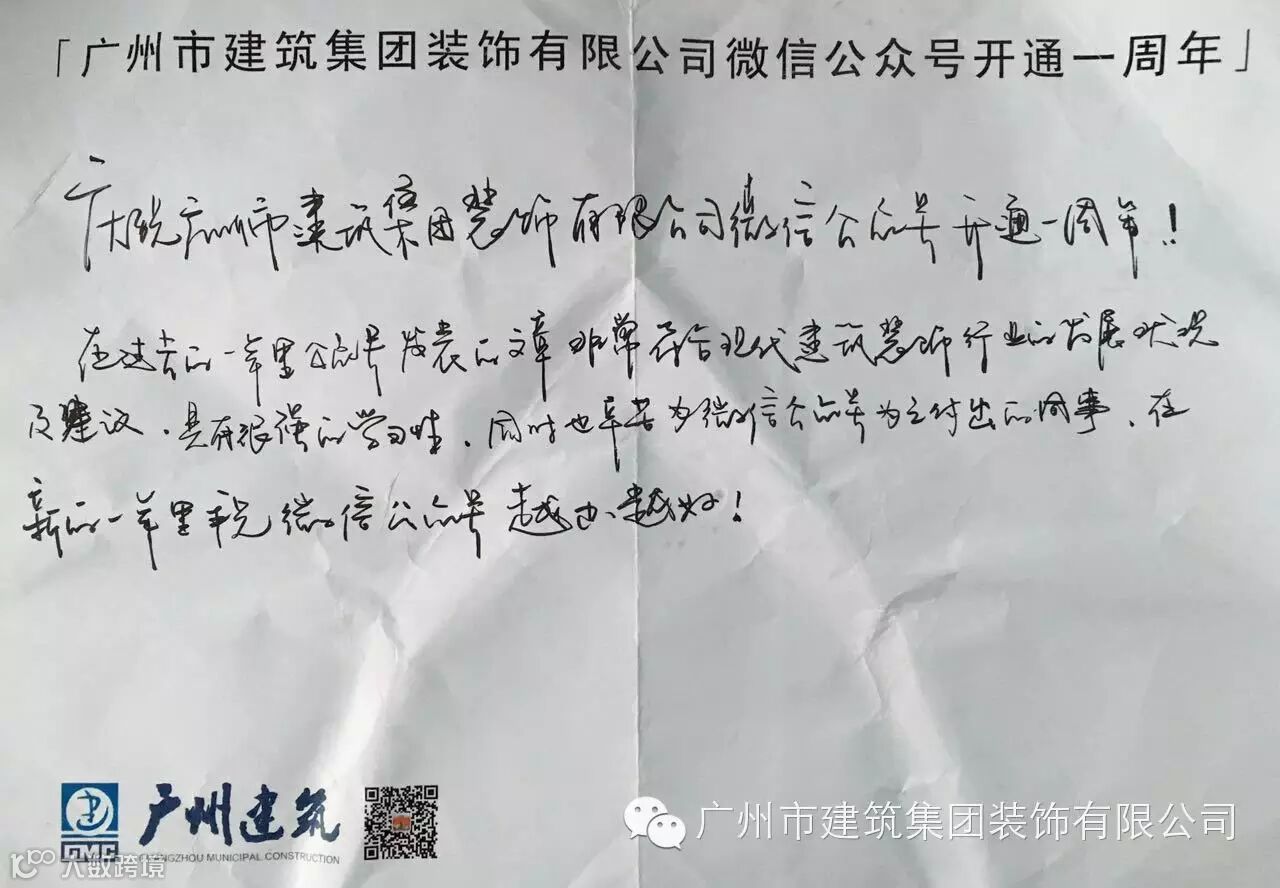 「广州市建筑集团装饰有限公司微信公众号开通一周年」
庆祝广州市建筑集团装饰有限公司微信公众号开通一周年！
在过去的一年里公众号发表的文章非常符合现代建筑装饰行业的发展状况
及建议，具有很强的学习性，同时也辛苦为微信公众号为之付出的同事，在
新的一年里祝微信公众号越办越好！
广州建筑
GMC
GUANGZHOU MUNICIPAL CONSTRUCTION
广州市建筑集团装饰有限公司
大数跨境